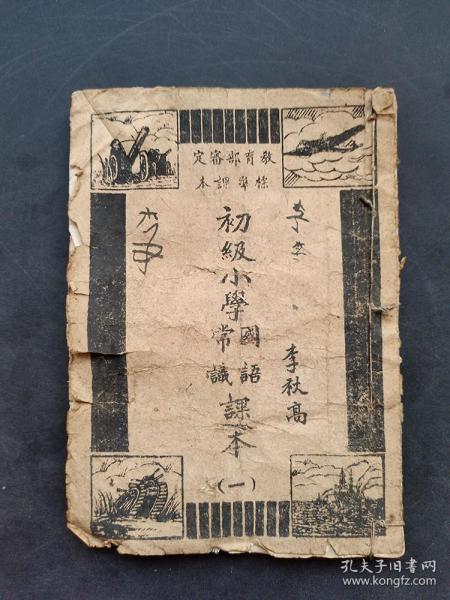 教育部審定
標準課本
初級小學國語常識課本
(一)
李秋高
李
孔夫子旧书网
www.kongfz.com